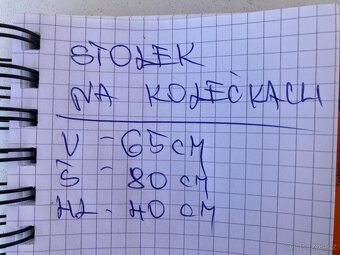 STOLEK
NA KOLEČKACH
V - 65 CM
Š - 80 CM
HL. 40 CM